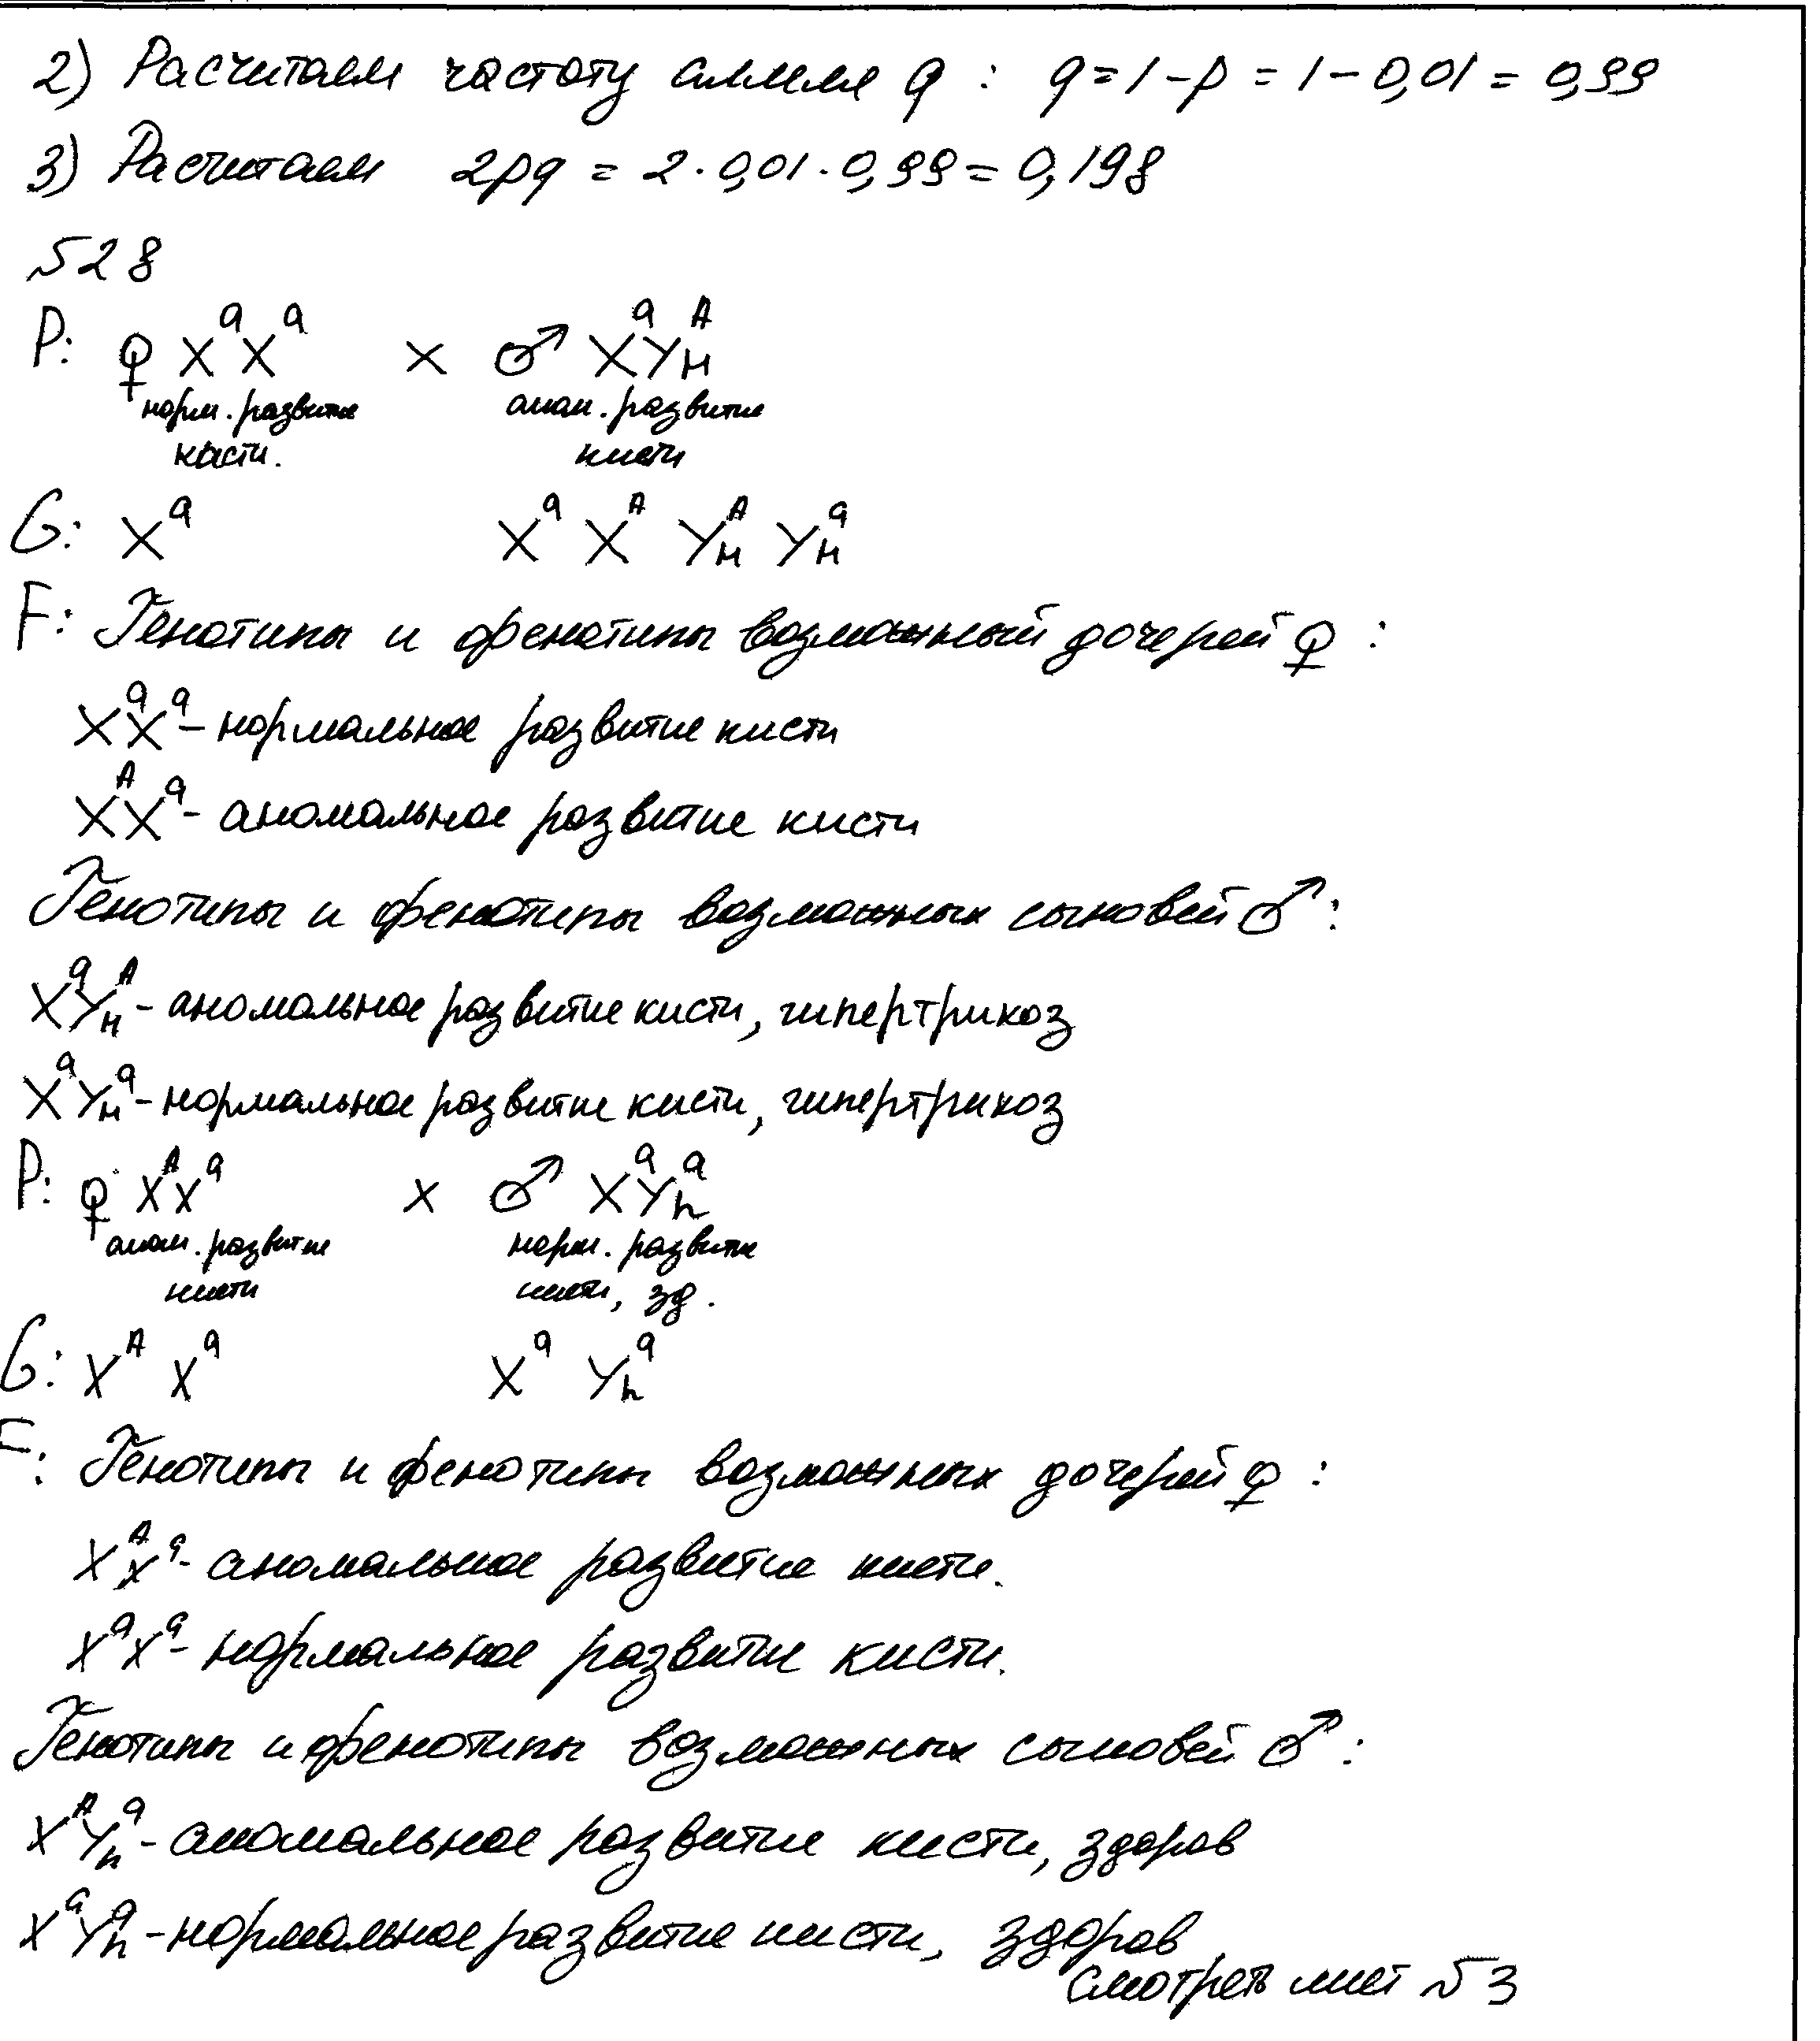 2) Расчитаем частоту аллеля q : q = 1 - p = 1 - 0,01 = 0,99
3) Расчитаем 2pq = 2 · 0,01 · 0,99 = 0,198
№28
P: ♀ XᵃXᵃ × ♂ XᵃYᴬ_H
норм. развитие аном. развитие
кисти. кисти
G: Xᵃ Xᵃ Xᴬ Yᴬ_H Yᵃ_H
F: Генотипы и фенотипы возможный дочерей ♀ :
XᵃXᵃ - нормальное развитие кисти
XᴬXᵃ - аномальное развитие кисти
Генотипы и фенотипы возможных сыновей ♂ :
XᵃYᴬ_H - аномальное развитие кисти, гипертрихоз
XᵃYᵃ_H - нормальное развитие кисти, гипертрихоз
P: ♀ XᴬXᵃ × ♂ XᵃYᵃ_h
аном. развитие норм. развитие
кисти кисти, зд.
G: Xᴬ Xᵃ Xᵃ Yᵃ_h
F: Генотипы и фенотипы возможных дочерей ♀ :
XᴬXᵃ - аномальное развитие кисти.
XᵃXᵃ - нормальное развитие кисти.
Генотипы и фенотипы возможных сыновей ♂ :
XᴬYᵃ_h - аномальное развитие кисти, здоров
XᵃYᵃ_h - нормальное развитие кисти, здоров
Смотреть лист №3